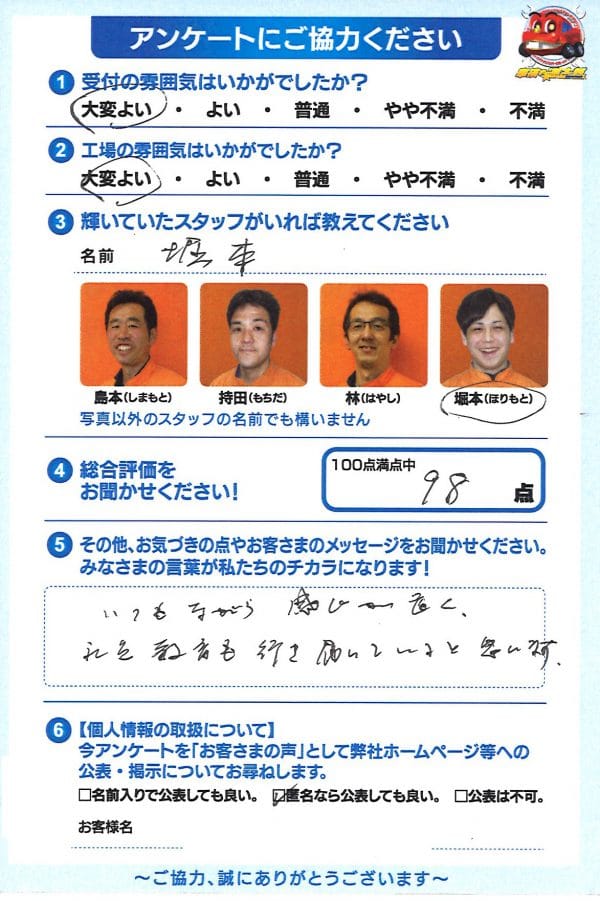 アンケートにご協力ください
1 受付の雰囲気はいかがでしたか?
大変よい ・ よい ・ 普通 ・ やや不満 ・ 不満
2 工場の雰囲気はいかがでしたか?
大変よい ・ よい ・ 普通 ・ やや不満 ・ 不満
3 輝いていたスタッフがいれば教えてください
名前 堀本
島本(しまもと) 持田(もちだ) 林(はやし) 堀本(ほりもと)
写真以外のスタッフの名前でも構いません
4 総合評価を
お聞かせください!
100点満点中
98 点
5 その他、お気づきの点やお客さまのメッセージをお聞かせください。
みなさまの言葉が私たちのチカラになります!
いつもながら感じが良く、
社員教育も行き届いていると思います.
6 【個人情報の取扱について】
今アンケートを「お客さまの声」として弊社ホームページ等への
公表・掲示についてお尋ねします。
□名前入りで公表しても良い。 ☑匿名なら公表しても良い。 □公表は不可。
お客様名
〜ご協力、誠にありがとうございます〜